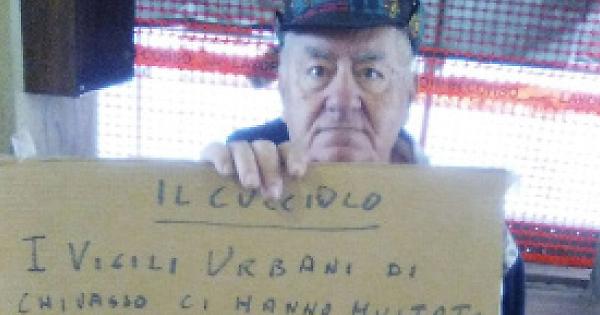 IL CUCCIOLO
I VIGILI URBANI DI
CHIVASSO CI HANNO MULTATI